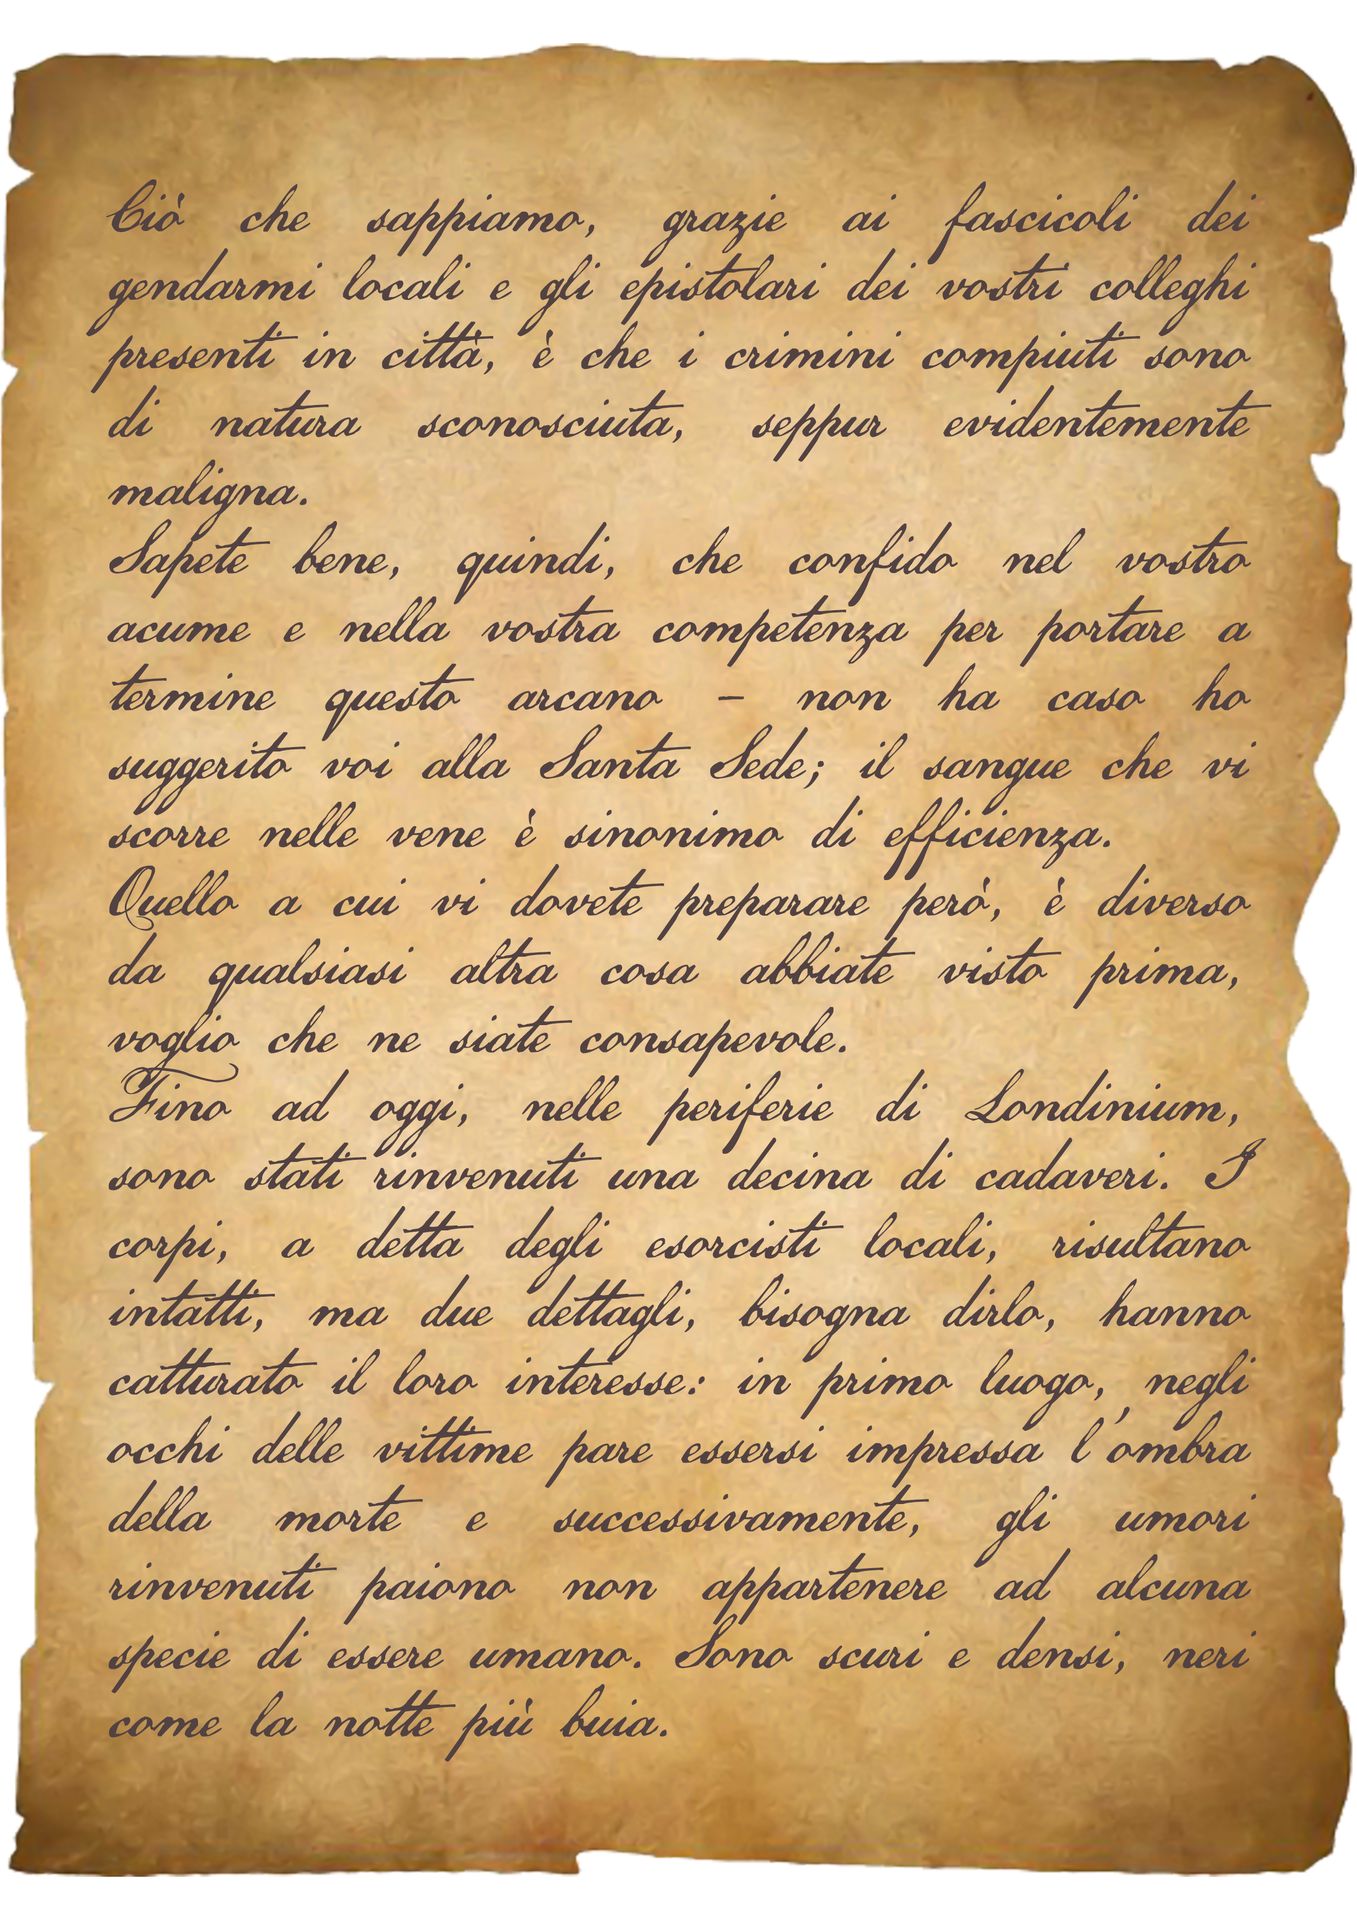 Ciò che sappiamo, grazie ai fascicoli dei
gendarmi locali e gli epistolari dei vostri colleghi
presenti in città, è che i crimini compiuti sono
di natura sconosciuta, seppur evidentemente
maligna.
Sapete bene, quindi, che confido nel vostro
acume e nella vostra competenza per portare a
termine questo arcano - non ha caso ho
suggerito voi alla Santa Sede; il sangue che vi
scorre nelle vene è sinonimo di efficienza.
Quello a cui vi dovete preparare però, è diverso
da qualsiasi altra cosa abbiate visto prima,
voglio che ne siate consapevole.
Fino ad oggi, nelle periferie di Londinium,
sono stati rinvenuti una decina di cadaveri. I
corpi, a detta degli esorcisti locali, risultano
intatti, ma due dettagli, bisogna dirlo, hanno
catturato il loro interesse: in primo luogo, negli
occhi delle vittime pare essersi impressa l'ombra
della morte e successivamente, gli umori
rinvenuti paiono non appartenere ad alcuna
specie di essere umano. Sono scuri e densi, neri
come la notte più buia.